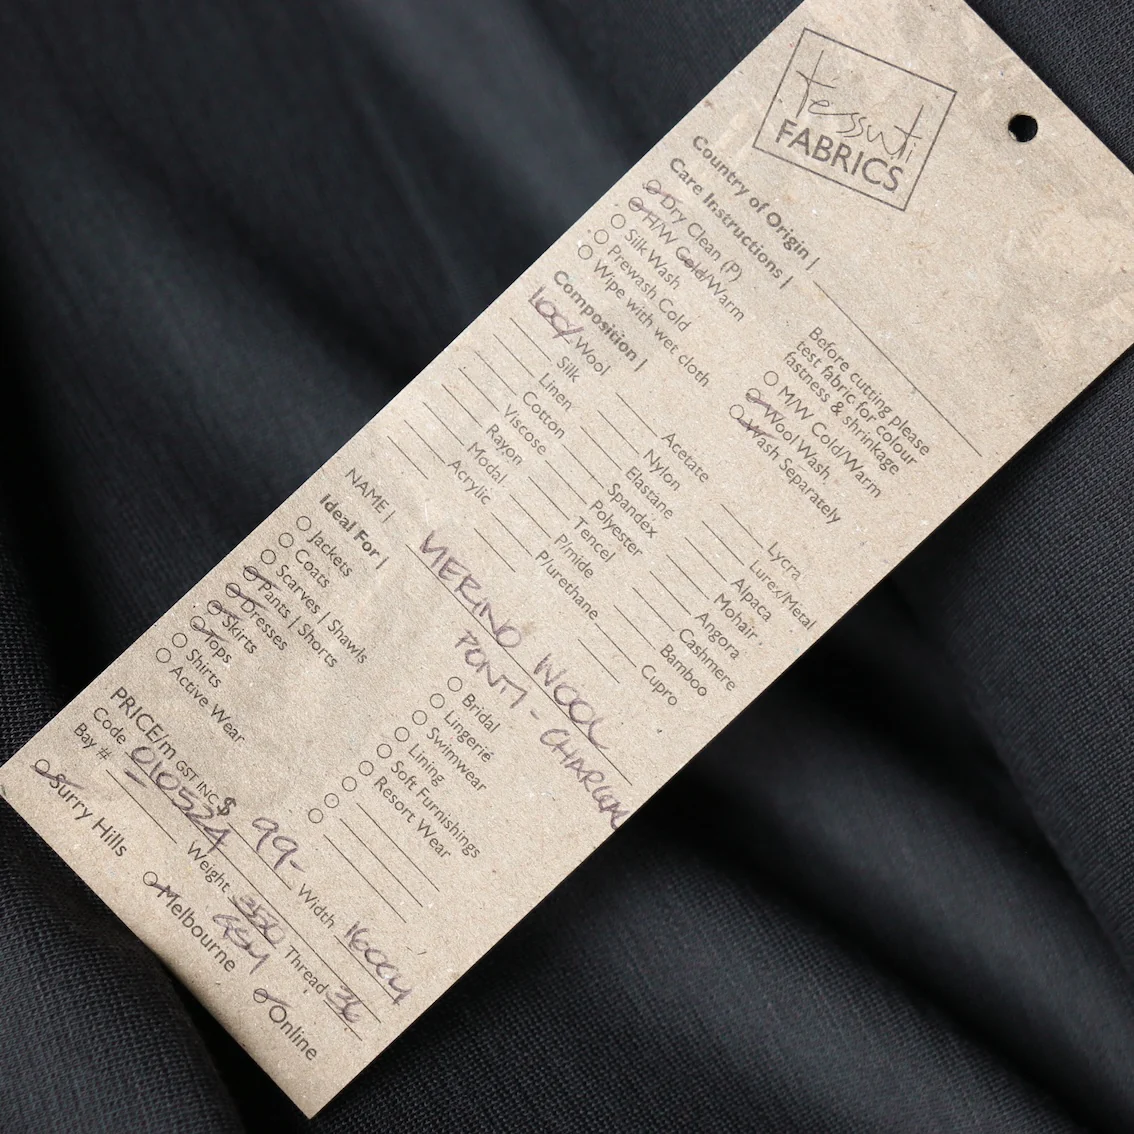 tessuti
FABRICS
Country of Origin |
Care Instructions |
Dry Clean (P)
H/W Cold/Warm
Silk Wash
Prewash Cold
Wipe with wet cloth
Before cutting please
test fabric for colour
fastness & shrinkage
M/W Cold/Warm
Wool Wash
Wash Separately
Composition |
100% Wool
Silk
Linen
Cotton
Viscose
Rayon
Modal
Acrylic
Acetate
Nylon
Elastane
Spandex
Polyester
Tencel
P/mide
P/urethane
Lycra
Lurex/Metal
Alpaca
Mohair
Angora
Cashmere
Bamboo
Cupro
NAME | MERINO WOOL
PONTI - CHARCOAL
Ideal For |
Jackets
Coats
Scarves | Shawls
Pants | Shorts
Dresses
Skirts
Tops
Shirts
Active Wear
Bridal
Lingerie
Swimwear
Lining
Soft Furnishings
Resort Wear
PRICE/m GST INC $ 99- Width 160CM
Code 010524 Weight 350 GSM Thread 36
Bay #
Surry Hills
Melbourne
Online